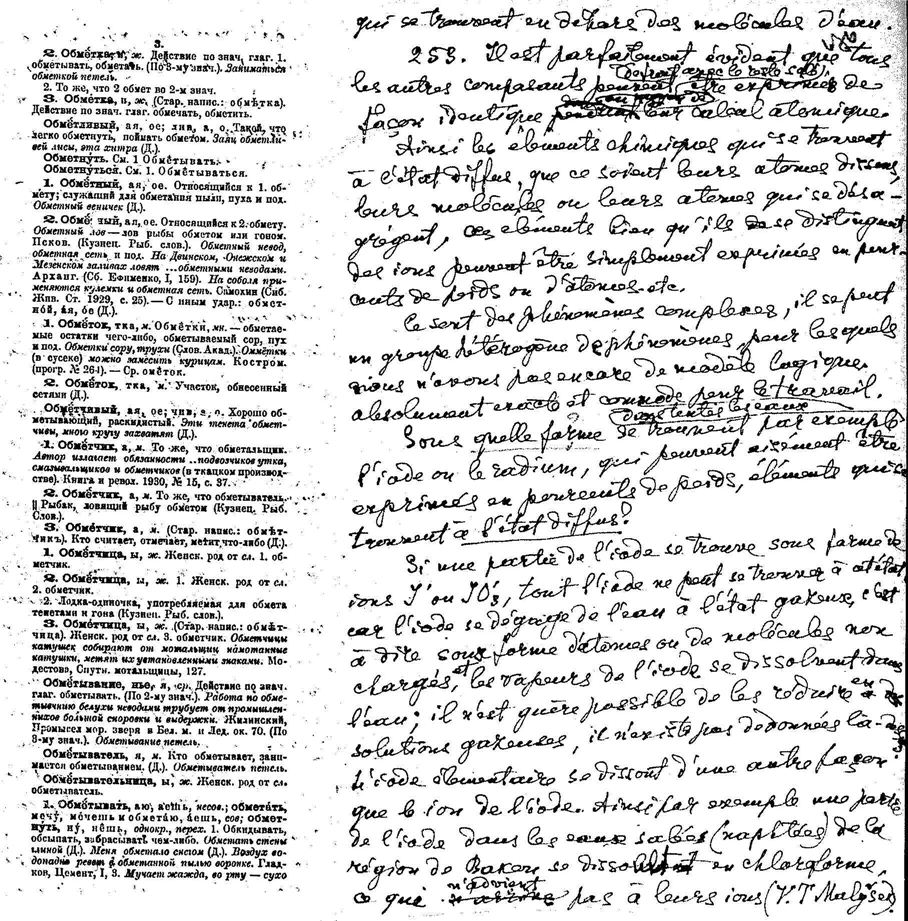 3.
2. Обмётка, и, ж. Действие по знач. глаг. 1.
обмётывать, обметать. (По 3-му знач.). Заниматься
обмёткой петель.
2. То же, что 2 обмет во 2-м знач.
3. Обмётка, и, ж. (Стар. напис.: обмѣтка).
Действие по знач. глаг. обмечать, обметить.
Обмётливый, ая, ое; лив, а, о. Такой, что
легко обметнуть, поймать обметом. Заяц обметли-
вей лисы, эта хитра (Д.).
Обметнуть. См. 1 Обмётывать.
Обметнуться. См. 1. Обмётываться.
1. Обмётный, ая, ое. Относящийся к 1. об-
мету; служащий для обметания пыли, пуха и под.
Обметный веничек (Д.).
2. Обмётный, ая, ое. Относящийся к 2. обмету.
Обметный лов — лов рыбы обметом или гоном.
Псков. (Кузнец. Рыб. слов.). Обметный невод,
обметная сеть и под. На Двинском, Онежском и
Мезенском заливах ловят ... обметными неводами.
Арханг. (Сб. Ефименко, I, 159). На соболя при-
меняются кулемки и обметная сеть. Самохин (Сиб.
Жив. Ст. 1929, с. 25). — С иным удар.: обмет-
но́й, а́я, о́е (Д.).
1. Обмёток, тка, м. Обмётки, мн. — обметае-
мые остатки чего-либо, обметываемый сор, пух
и под. Обметки сору, трухи (Слов. Акад.). Омметки
(в сусеке) можно замесить курицам. Костром.
(прогр. № 264). — Ср. омёток.
2. Обмёток, тка, м. Участок, обнесенный
сетями (Д.).
Обмётчивый, ая, ое; чив, а, о. Хорошо об-
метывающий, раскидистый. Эти тенета обмет-
чивы, много кругу захватят (Д.).
1. Обмётчик, а, м. То же, что обметальщик.
Автор излагает обязанности .. подвозчиков утка,
смазывальщиков и обметчиков (в ткацком производ-
стве). Книга и револ. 1930, № 15, с. 37.
2. Обмётчик, а, м. То же, что обметыватель.
|| Рыбак, ловящий рыбу обметом (Кузнец. Рыб.
Слов.).
3. Обмётчик, а, м. (Стар. напис.: обмѣт-
чикъ). Кто считает, отмечает, метит что-либо (Д.).
1. Обмётчица, ы, ж. Женск. род от сл. 1. об-
метчик.
2. Обмётчица, ы, ж. 1. Женск. род от сл.
2. обметчик.
2. Лодка-одиночка, употребляемая для обмета
тенетами и гона (Кузнец. Рыб. слов.).
3. Обмётчица, ы, ж. (Стар. напис.: обмѣт-
чица). Женск. род от сл. 3. обметчик. Обметчицы
катушек собирают от мотальщиц намотанные
катушки, метят их установленными знаками. Мо-
дестова, Спутн. мотальщицы, 127.
Обмётывание, нье, я, ср. Действие по знач.
глаг. обметывать. (По 2-му знач.). Работа по обме-
тыванию белухи неводами трубует от промышлен-
ников большой сноровки и выдержки. Жилинский,
Промысел мор. зверя в Бел. м. и Лед. ок. 70. (По
3-му знач.). Обметывание петель.
Обмётыватель, я, м. Кто обметывает, зани-
мается обметыванием. (Д.). Обметыватель петель.
Обмётывательница, ы, ж. Женск. род от сл.
обметыватель.
1. Обмётывать, аю, аешь, несов.; обметать,
мечу, мечешь и обметаю, аешь, сов; обмет-
нуть, ну, нёшь, однокр., перех. 1. Обкидывать,
обсыпать, забрасывать чем-либо. Обметать стены
глиной (Д.). Меня обметало снегом (Д.). Воздух во-
допадно ревет в обметанной пылью воронке. Глад-
ков, Цемент, I, 3. Мучает жажда, во рту — сухо
qui se trouvent en dehors des molécules d'eau.
253. Il est parfaitement évident que tous
les autres composants peuvent être exprimés de
façon identique par leur calcul atomique.
Ainsi les éléments chimiques qui se trouvent
à l'état diffus, que ce soient leurs atomes dissous,
leurs molécules ou leurs atomes qui se désa-
grégent, ces éléments bien qu'ils se distinguent
des ions peuvent être simplement exprimés en pour-
cents de poids ou d'atomes etc.
Ce sont des phénomènes complexes, il se peut
un groupe hétérogène de phénomènes, pour lesquels
nous n'avons pas encore de modèle logique
absolument exact et commode pour le travail.
dans toutes les eaux
Sous quelle forme se trouvent par exemple
l'iode ou le radium, qui peuvent aisément être
exprimés en pourcents de poids, éléments qui se
trouvent à l'état diffus?
Si une partie de l'iode se trouve sous forme de
ions J' ou JO'₃, tout l'iode ne peut se trouver à cet état
car l'iode se dégage de l'eau à l'état gazeux, c'est
à dire sous forme d'atomes ou de molécules non
chargés, et les vapeurs de l'iode se dissolvent dans
l'eau; il n'est guère possible de les réduire en des
solutions gazeuses, il n'existe pas de données là-dessus.
L'iode élémentaire se dissout d'une autre façon
que le ion de l'iode. Ainsi par exemple une partie
de l'iode dans les eaux salées (naphtées) de la
région de Bakou se dissout en chloroforme,
ce qui n'advient pas à leurs ions (V. T. Malyšev)